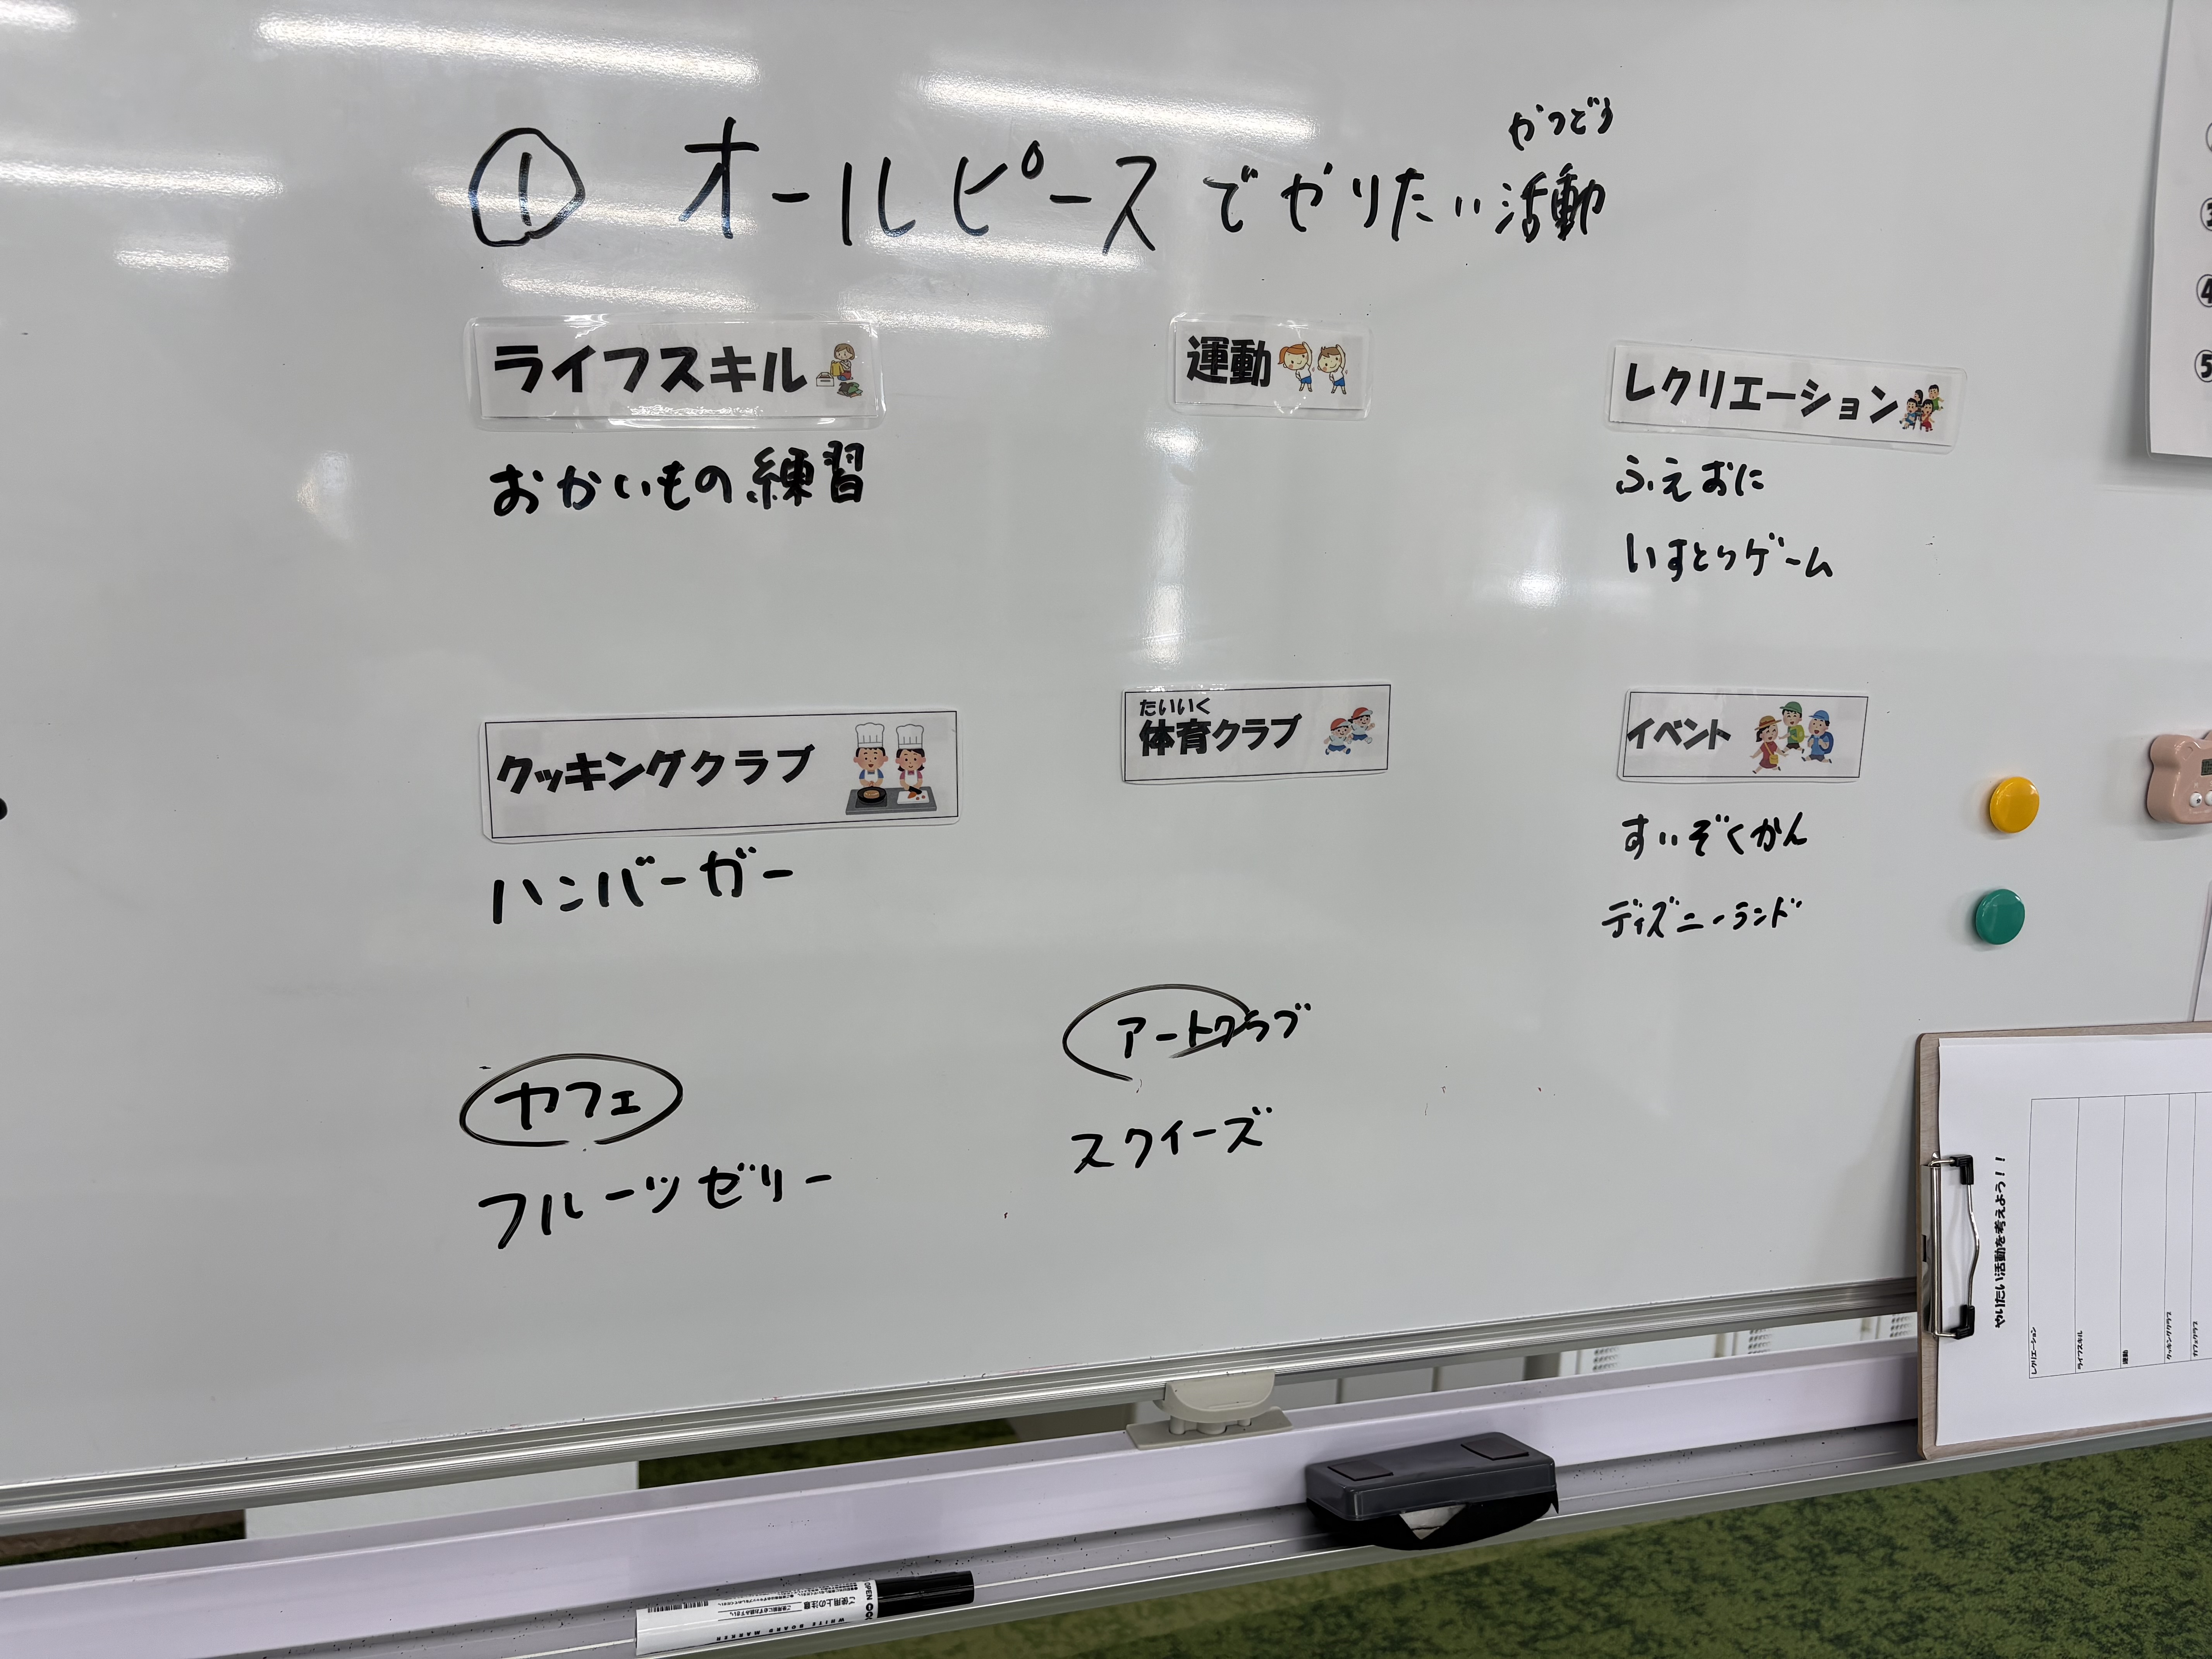 ① オールピースでやりたい活動
かつどう
ライフスキル
おかいもの練習
運動
レクリエーション
ふえおに
いすとりゲーム
クッキングクラブ
ハンバーガー
たいいく
体育クラブ
イベント
すいぞくかん
ディズニーランド
カフェ
フルーツゼリー
アートクラブ
スクイーズ
やりたい活動を考えよう!!
レクリエーション
ライフスキル
運動
クッキングクラブ
カフェクラブ
④
⑤
使用上の注意
WHITE BOARD MARKER
OPEN